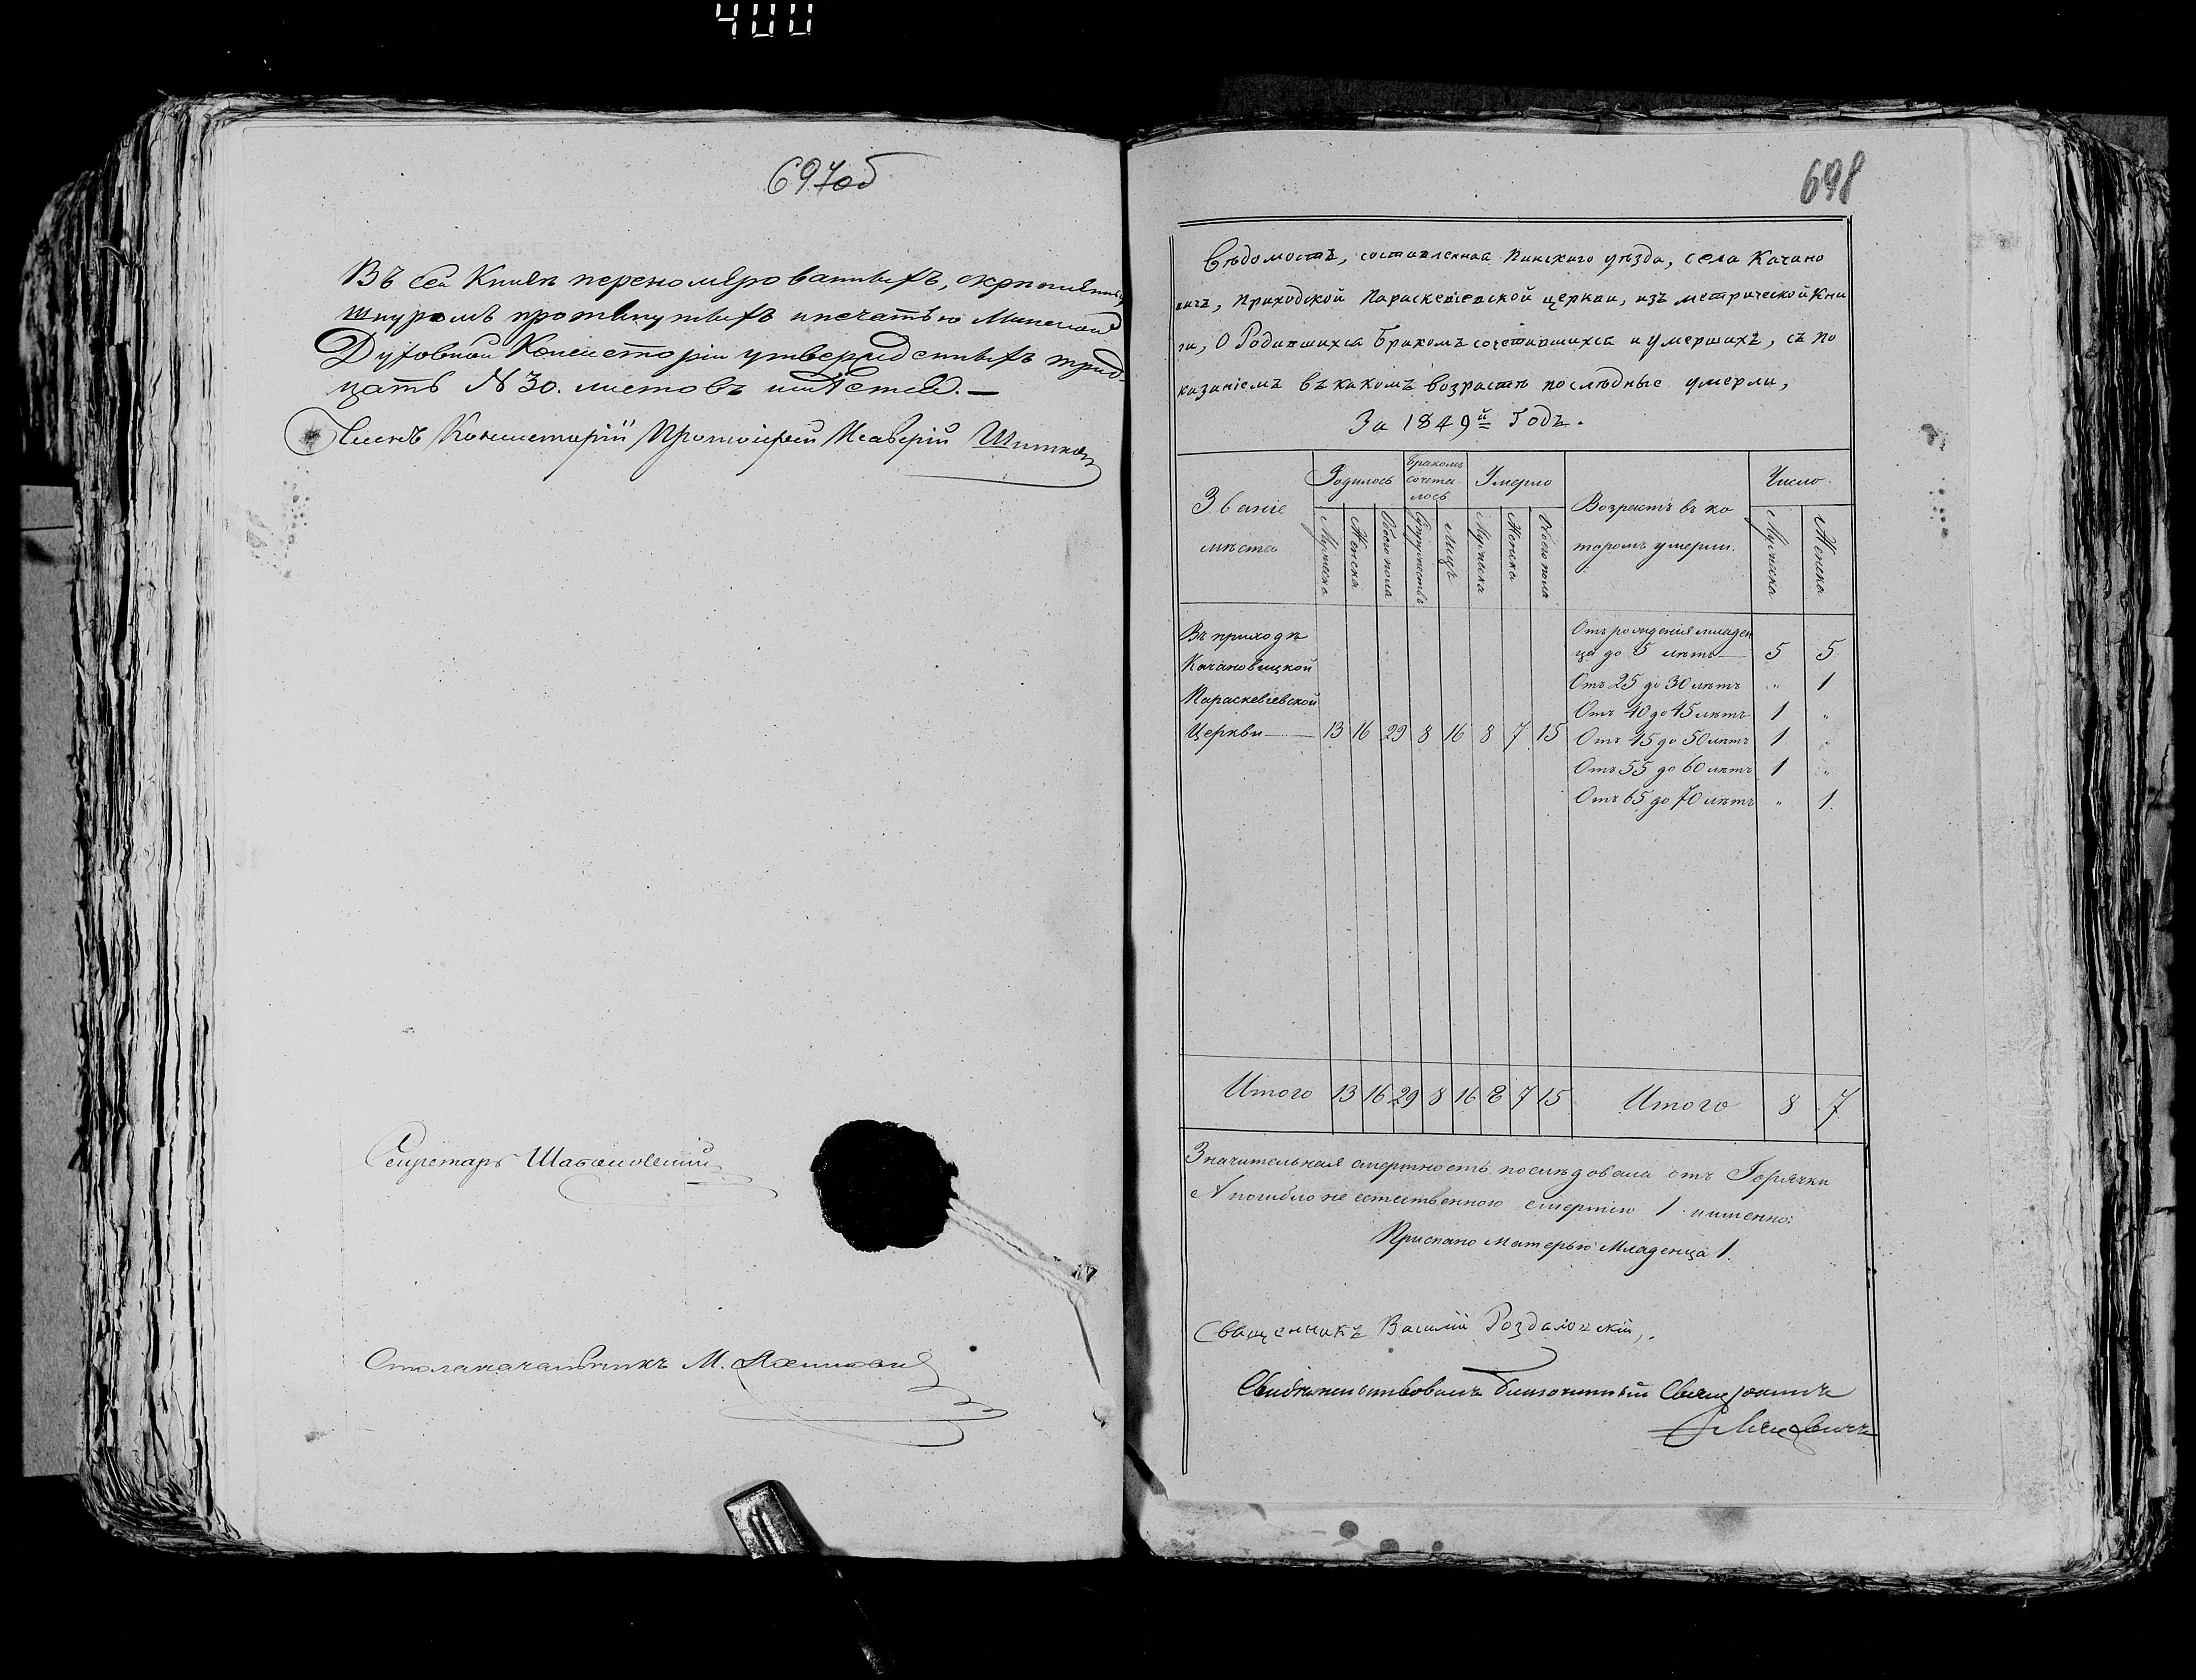 400
697об
Въ сей Книгѣ перенумерованныхъ, скрѣпленныхъ
шнуромъ протянутыхъ и печатью Минской
Духовной Консисторіи утвержденныхъ трид-
цать № 30. листовъ
Членъ Консисторіи Протоіерей
Секретарь
Столоначальникъ М.
698
Вѣдомость, составленная Пинскаго уѣзда, села Качано
вичъ, приходской Параскевіевской церкви, изъ метрической Кни
ги, О Родившихся Бракомъ сочетавшихся и умершихъ, съ по
казаніемъ въ какомъ возрастѣ послѣдные умерли,
За 1849й Годъ.
Званіе мѣста
Родилось
Бракомъ сочета-лось
Умерло
Возрастъ въ ко торомъ умерли.
Число
Мужеска Женска Обоего пола Супружествъ Лицъ Мужеска Женска Обоего пола Мужеска Женска
Въ приходѣ
Качановицкой
Параскевіевской
Церкви 13 16 29 8 16 8 7 15
Отъ рожденія младен
ца до 5 лѣтъ 5 5
Отъ 25 до 30 лѣтъ " 1
Отъ 40 до 45 лѣтъ 1 "
Отъ 45 до 50 лѣтъ 1 "
Отъ 55 до 60 лѣтъ 1 "
Отъ 65 до 70 лѣтъ " 1.
Итого 13 16 29 8 16 8 7 15 Итого 8 7
Значительная смертность послѣдовала отъ Горячки
А погибло не естественною смертію 1 именно:
Приспано матерью Младенца 1.
Священникъ Василій
Свидѣтельствовалъ Благочинный